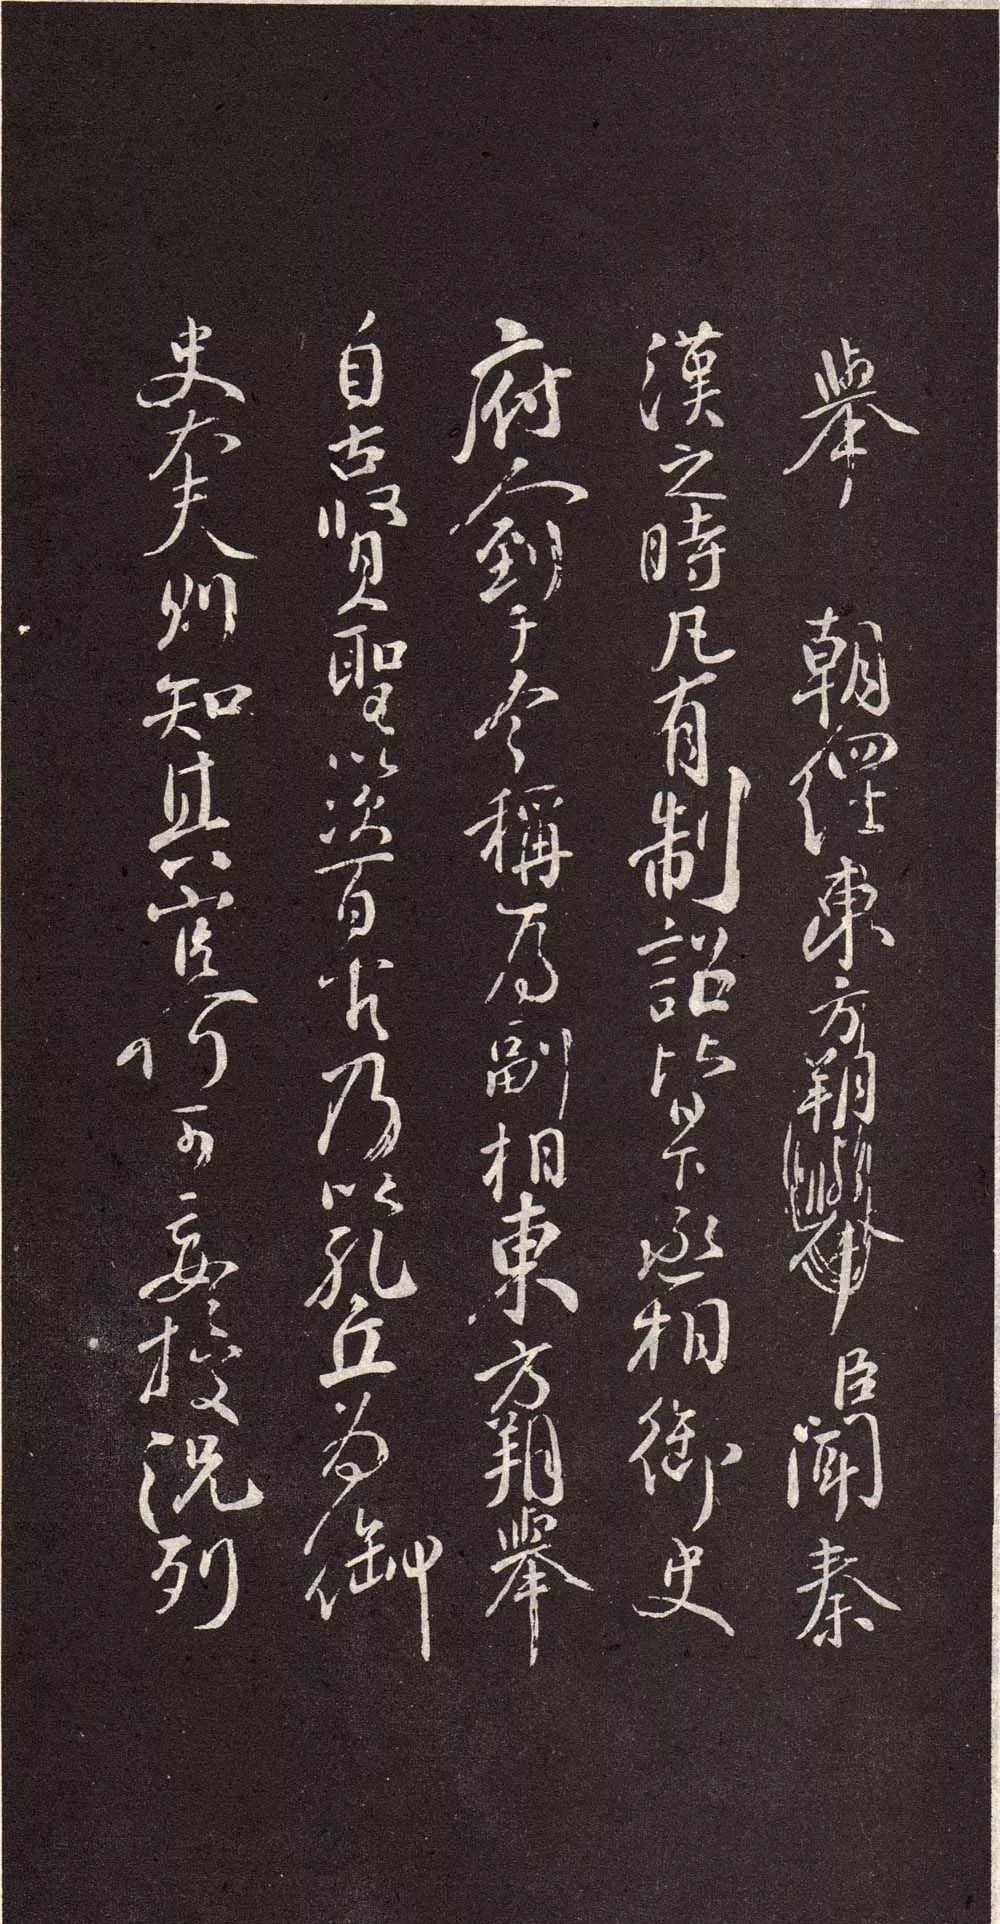 舉 朝經東方朔舉臣聞秦
漢之時凡有制詔皆下丞相御史
府人到于今稱為副相東方朔舉
自古賢聖以次百官乃以孔丘為御
史大夫則知其官何可妄授況列